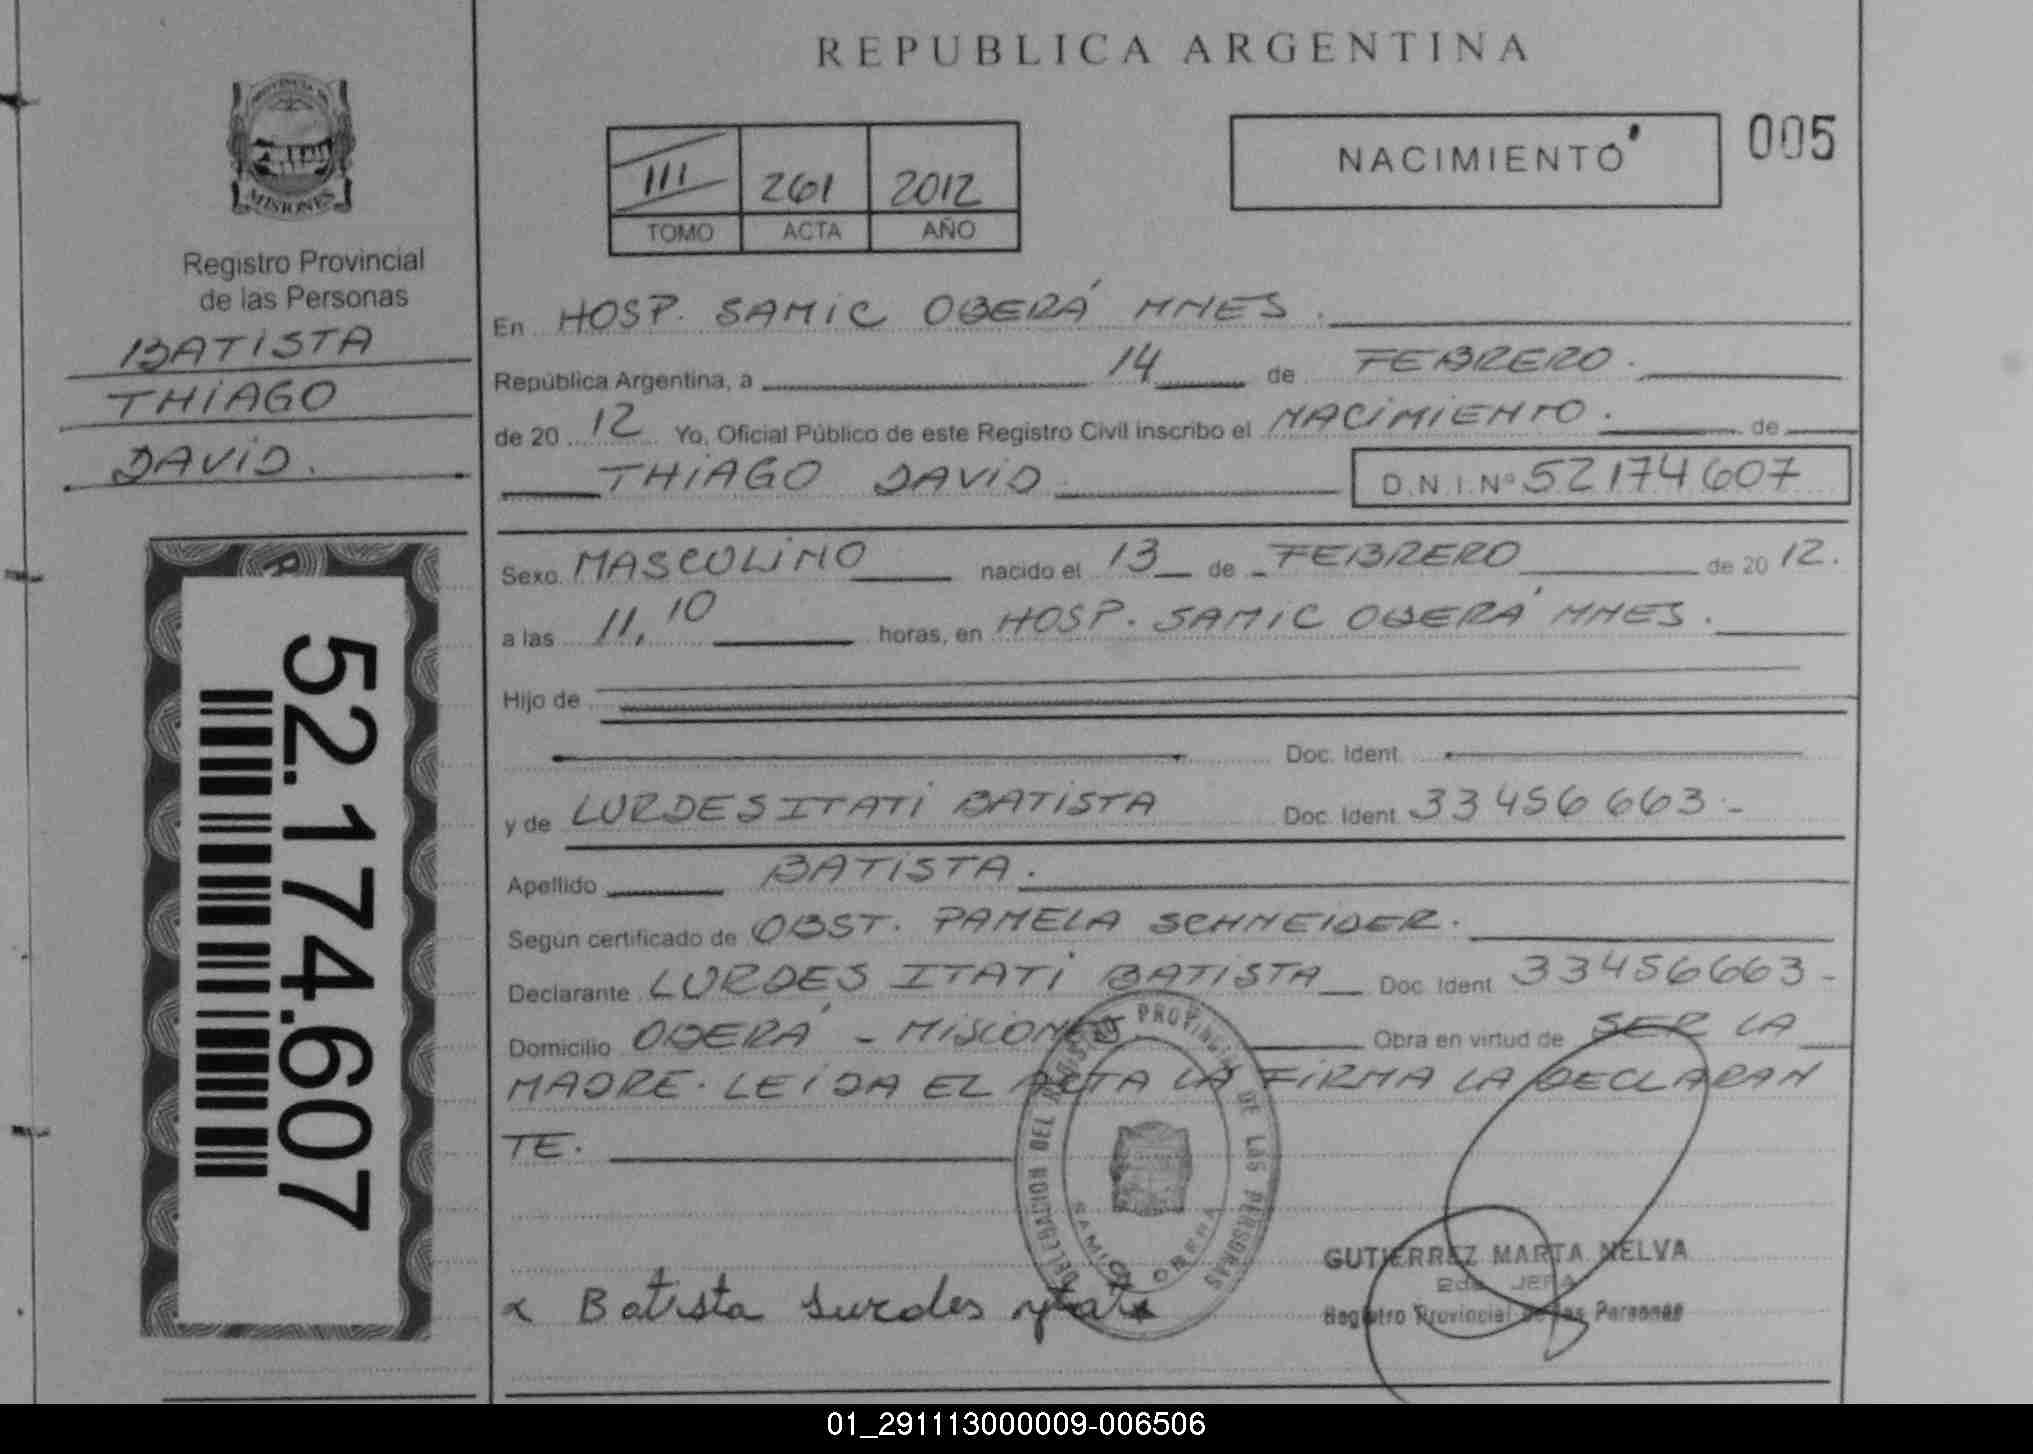 REPUBLICA ARGENTINA
PROVINCIA DE
MISIONES
Registro Provincial
de las Personas
BATISTA
THIAGO
DAVID.
52.174.607
III 261 2012
TOMO ACTA AÑO
NACIMIENTO 005
En HOSP. SAMIC OBERÁ MNES.
República Argentina, a 14 de FEBRERO.
de 20 12 Yo, Oficial Público de este Registro Civil inscribo el NACIMIENTO. de
THIAGO DAVID D.N.I.Nº 52174607
Sexo. MASCULINO nacido el 13 de FEBRERO de 20 12.
a las 11,10 horas, en HOSP. SAMIC OBERÁ MNES.
Hijo de
Doc. Ident.
y de LURDES ITATI BATISTA Doc. Ident 33456663.-
Apellido BATISTA.
Según certificado de OBST. PAMELA SCHNEIDER.
Declarante LURDES ITATI BATISTA Doc. Ident 33456663-
Domicilio OBERÁ - MISIONES Obra en virtud de SER LA
MADRE. LEIDA EL ACTA LA FIRMA LA DECLARAN
TE.
DELEGACION DEL REGISTRO PROVINCIAL DE LAS PERSONAS
SAMIC OBERA
GUTIERREZ MARTA NELVA
2da JEFA
Registro Provincial de las Personas
x Batista Lurdes ytati
01_291113000009-006506